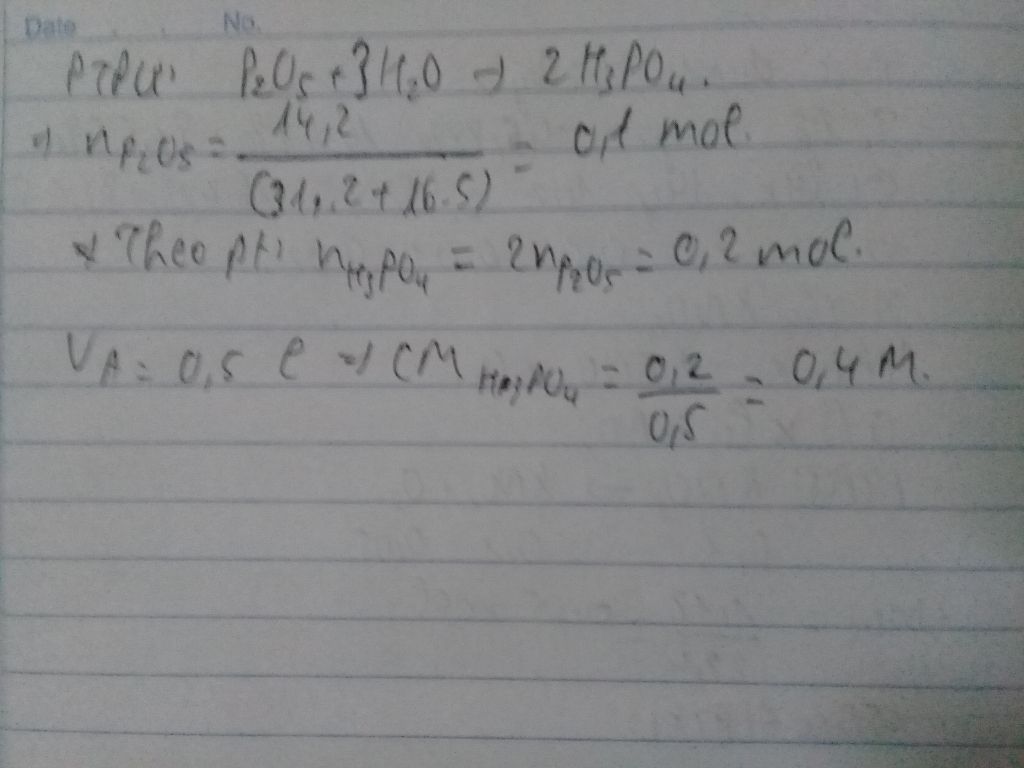 Date No.
PTPƯ: P₂O₅ + 3H₂O → 2H₃PO₄.
⇒ nP₂O₅ = 14,2 / (31.2 + 16.5) = 0,1 mol.
Theo pt: nH₃PO₄ = 2nP₂O₅ = 0,2 mol.
VA = 0,5 l ⇒ CM H₃PO₄ = 0,2 / 0,5 = 0,4 M.